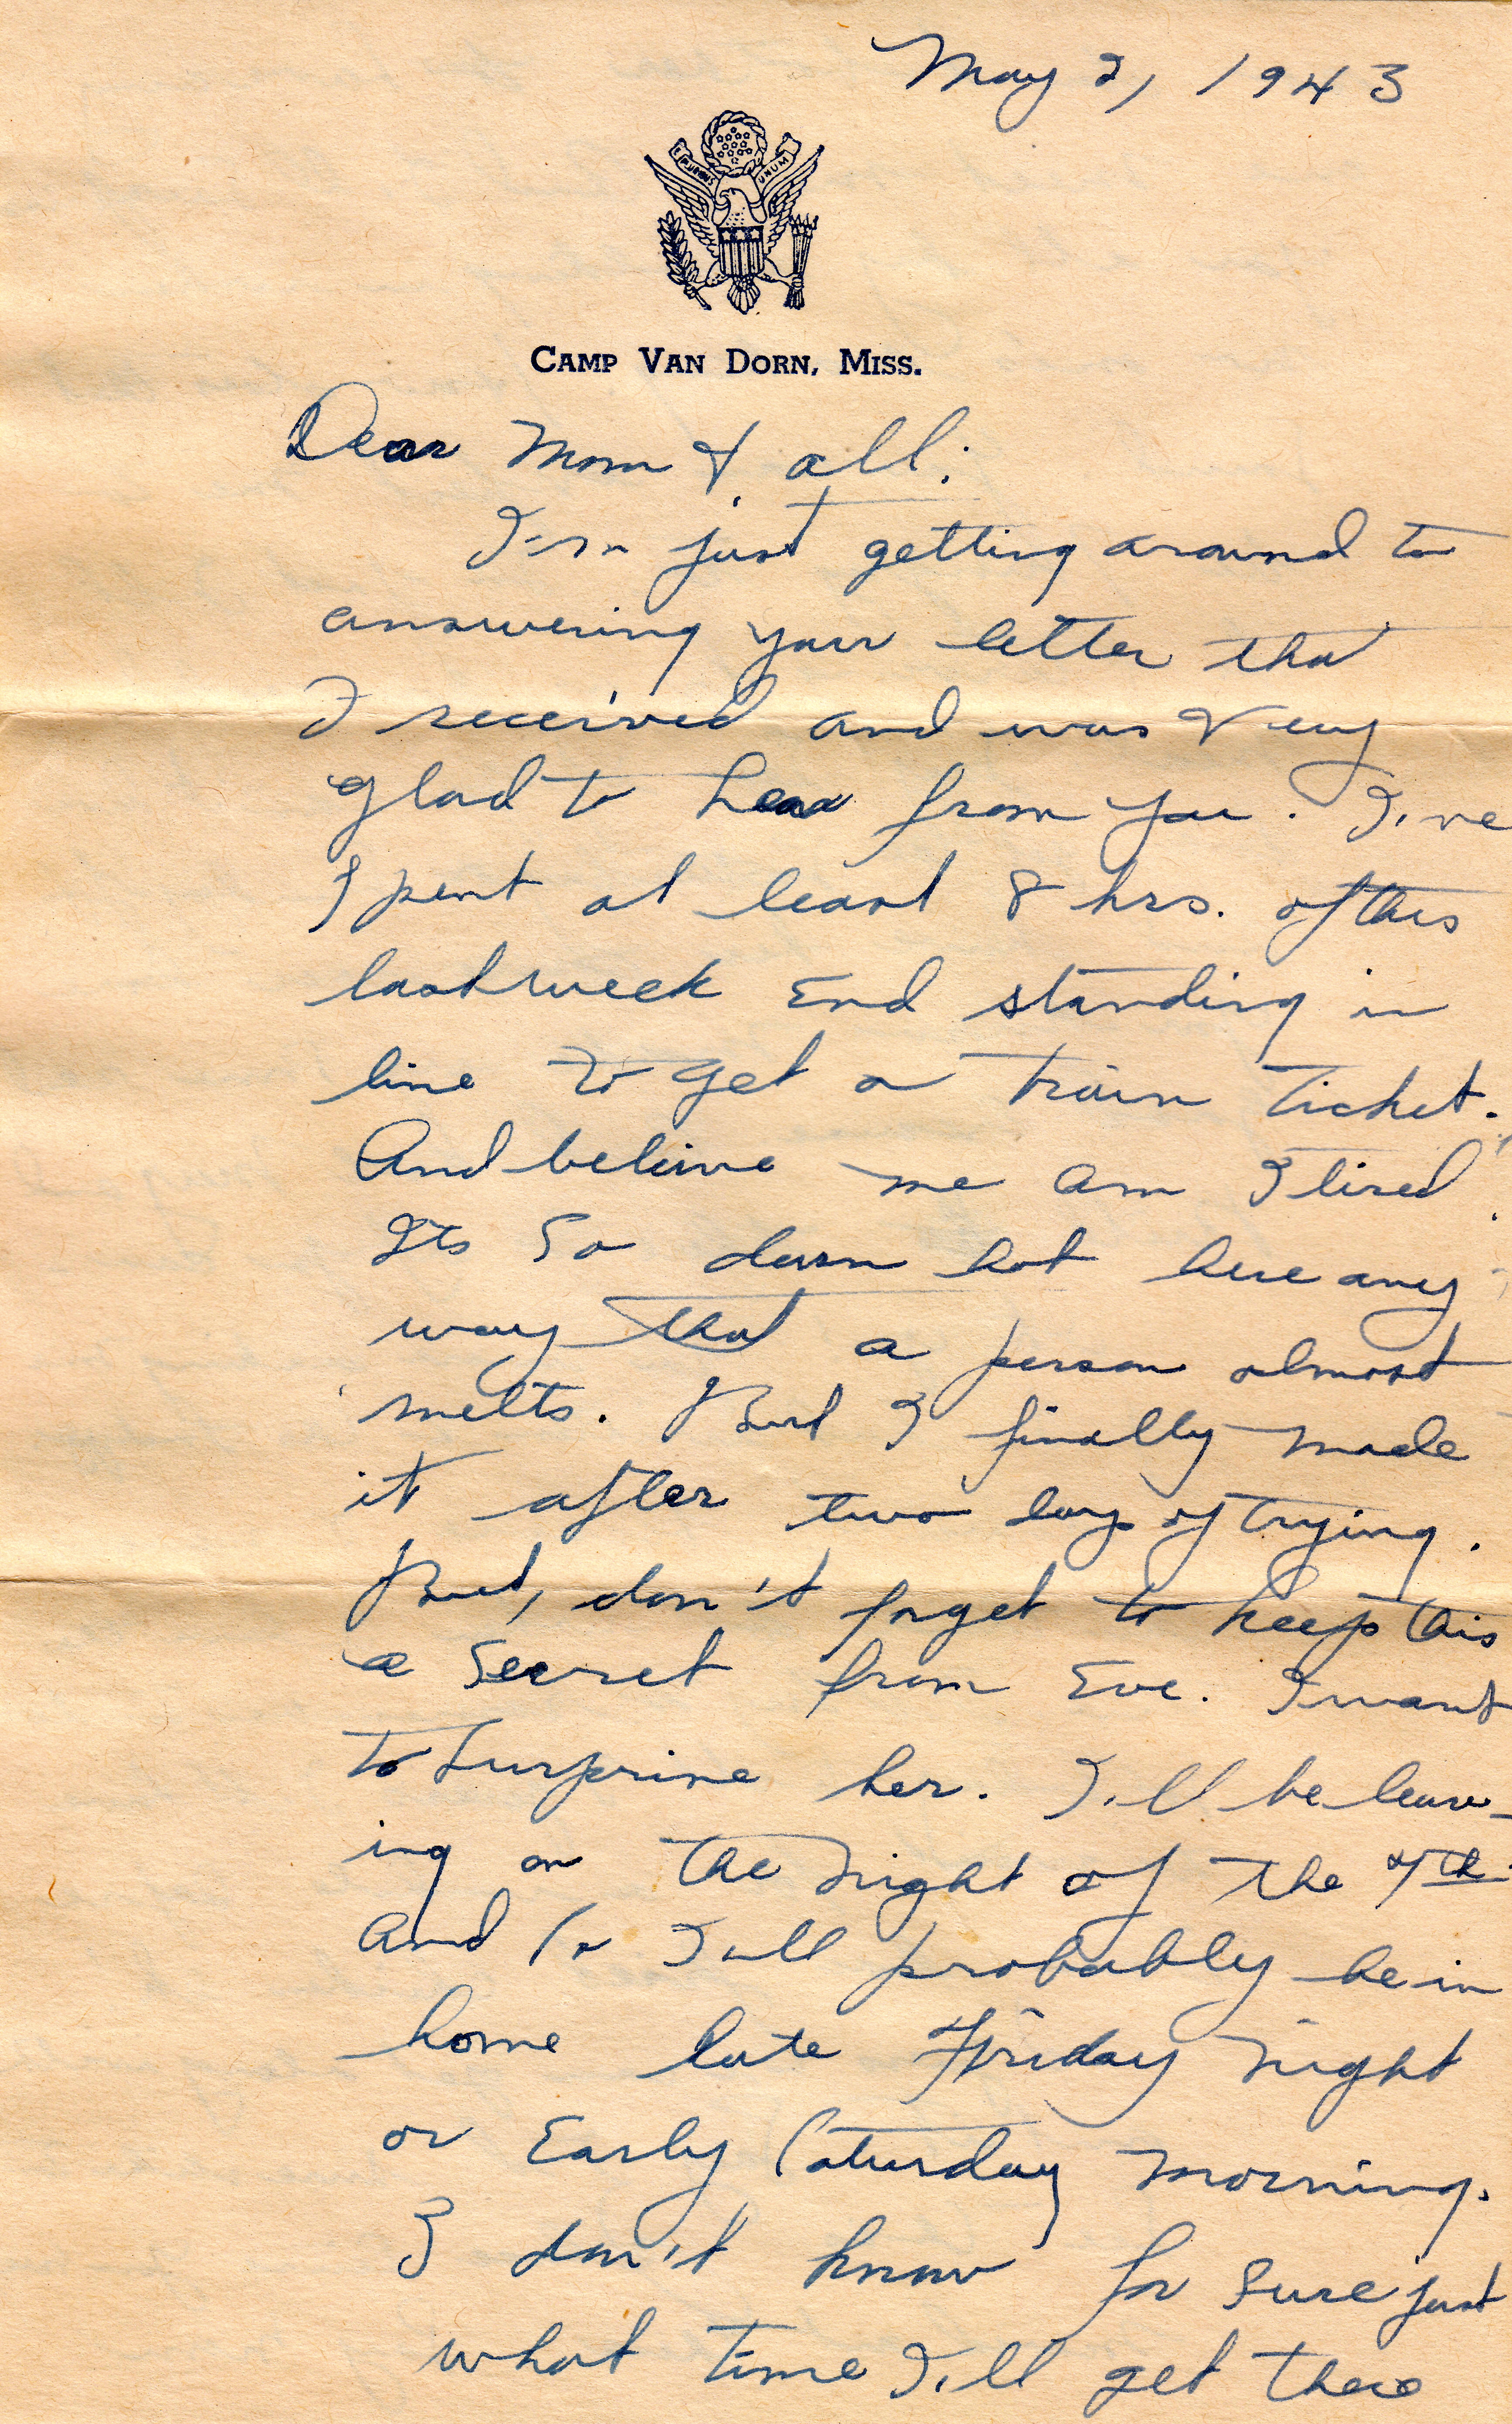 May 2, 1943
E PLURIBUS UNUM
CAMP VAN DORN, MISS.
Dear Mom & all:
I'm just getting around to
answering your letter that
I received and was very
glad to hear from you. I've
spent at least 8 hrs. of this
last week end standing in
line to get a train ticket.
And believe me am I tired.
Its so darn hot here any
way that a person almost
melts. But I finally made
it after two days of trying.
But, don't forget to keep this
a secret from Eve. I want
to surprise her. I'll be leav-
ing on the night of the
and so I'll probably be in
home late Friday night
or Early Saturday morning.
I don't know for sure just
what time I'll get there